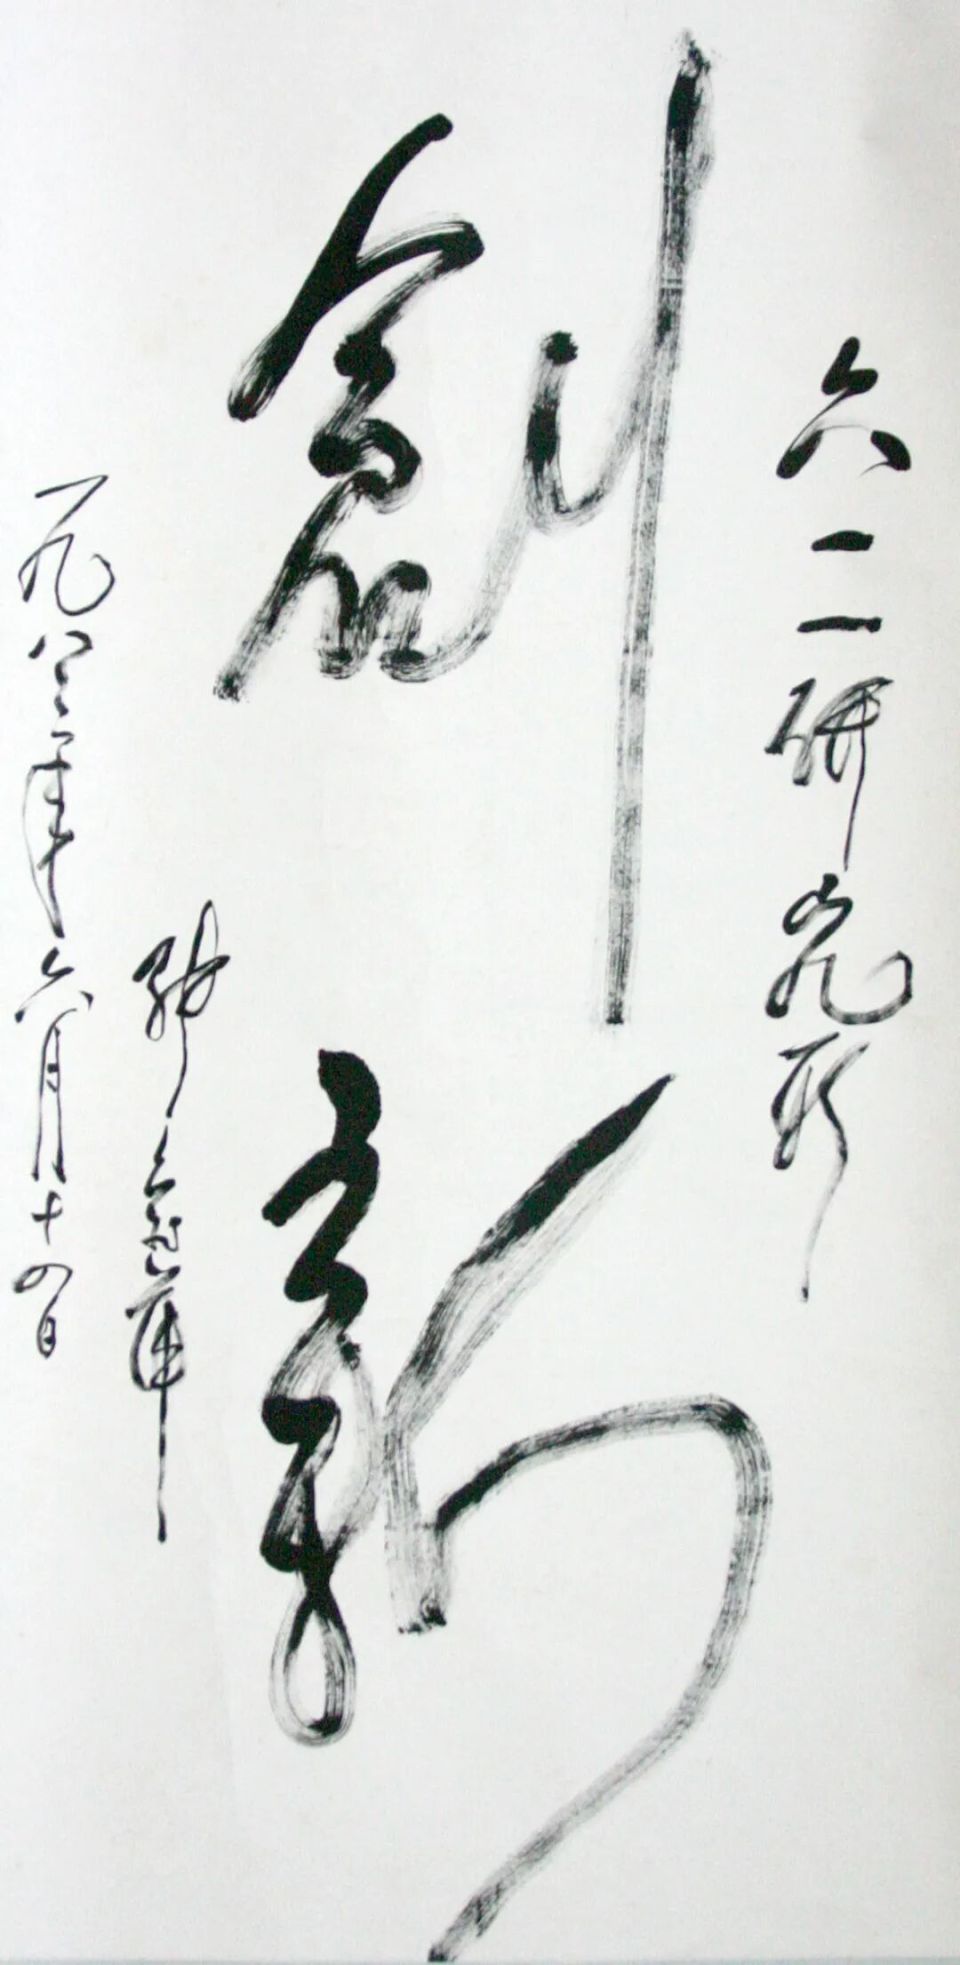 六二研究所
創新
張愛萍
一九八三年六月十四日